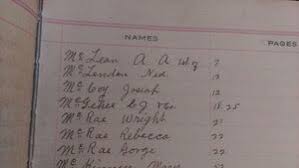 NAMES PAGES
McLean A A
McLenden Ned 12
McCoy Josiah 12
McGehee C J 18 25
McRae Wright 21
McRae Rebecca 22
McRae George 22
Mary 52